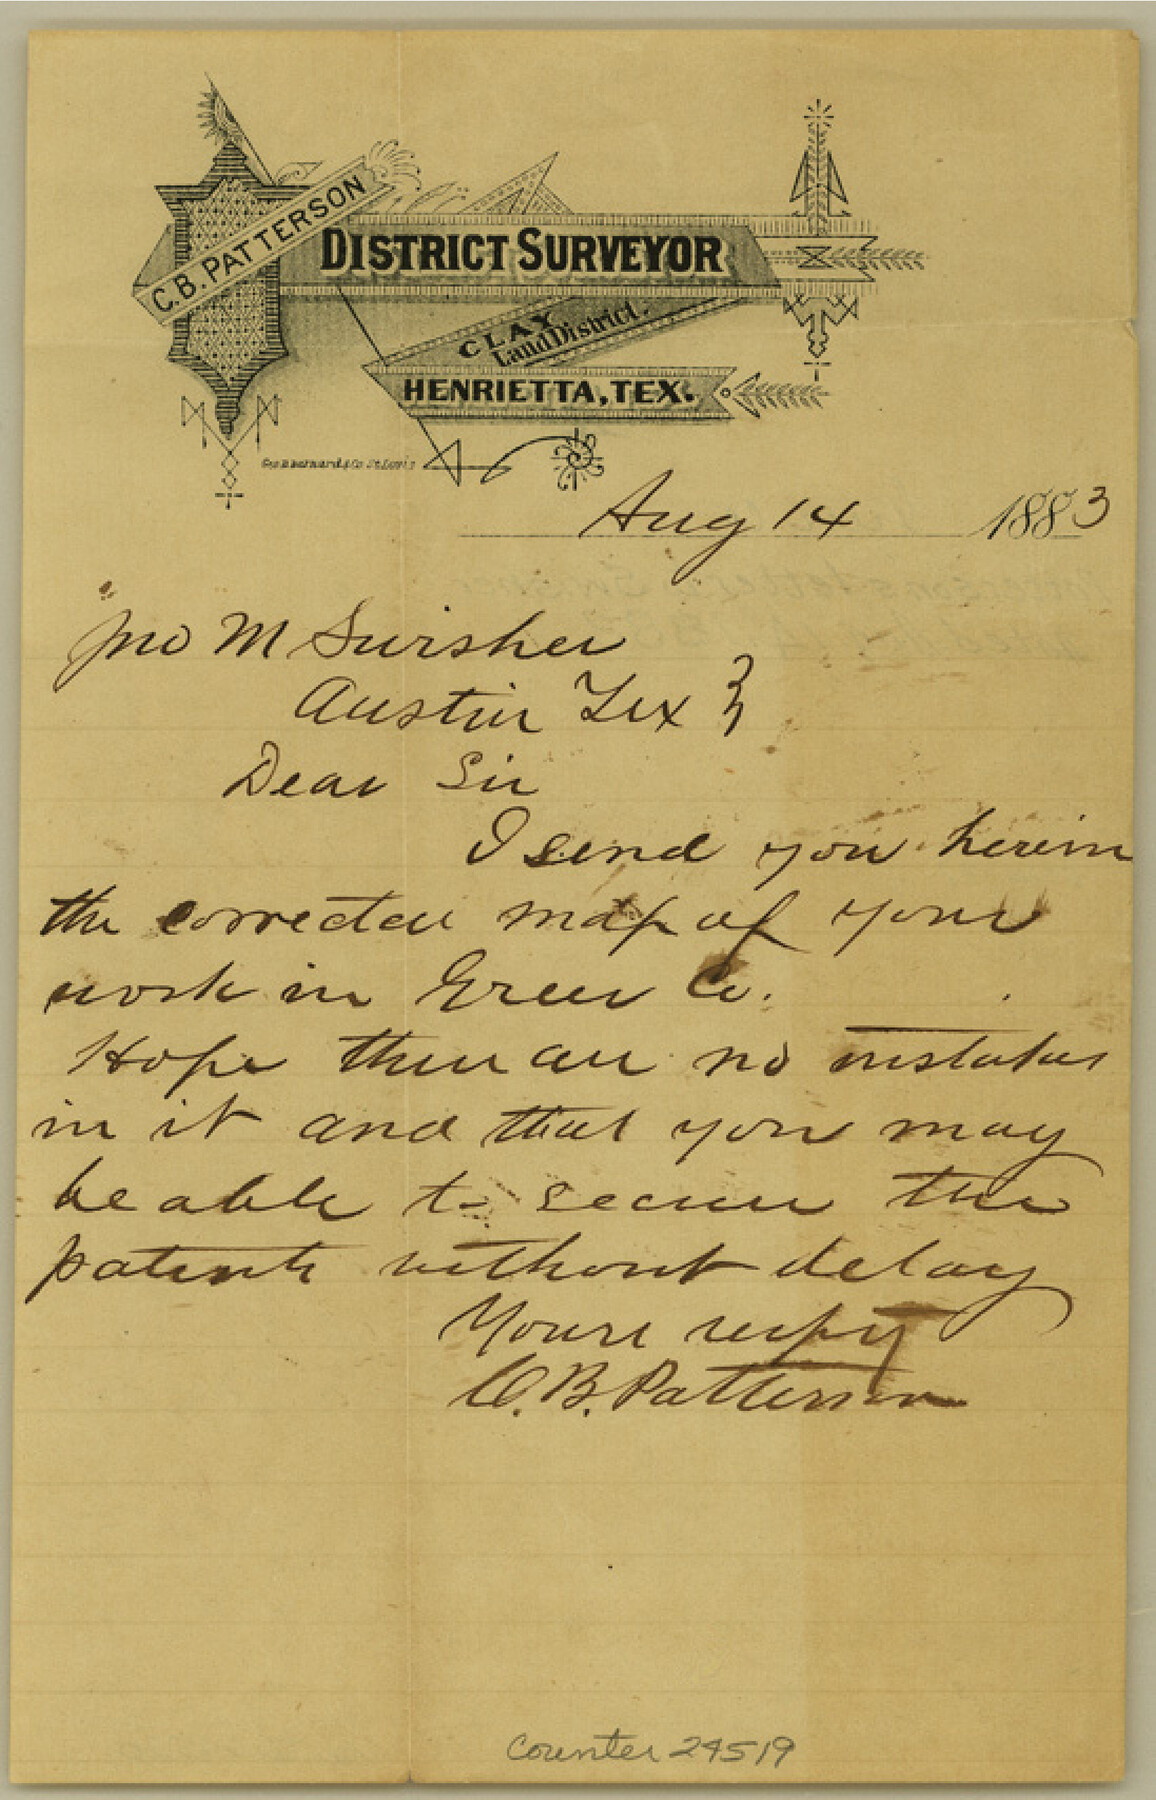 C.B. PATTERSON
DISTRICT SURVEYOR
CLAY
Land District.
HENRIETTA, TEX.
Geo D Barnard & Co St Louis
Aug 14 1883
Jno M Swisher
Austin Tex
Dear Sir
I send you herein
the corrected map of your
work in Greer Co.
Hope there are no mistakes
in it and that you may
be able to secure the
patents without delay
Yours respy
C. B. Patterson
Counter 24519